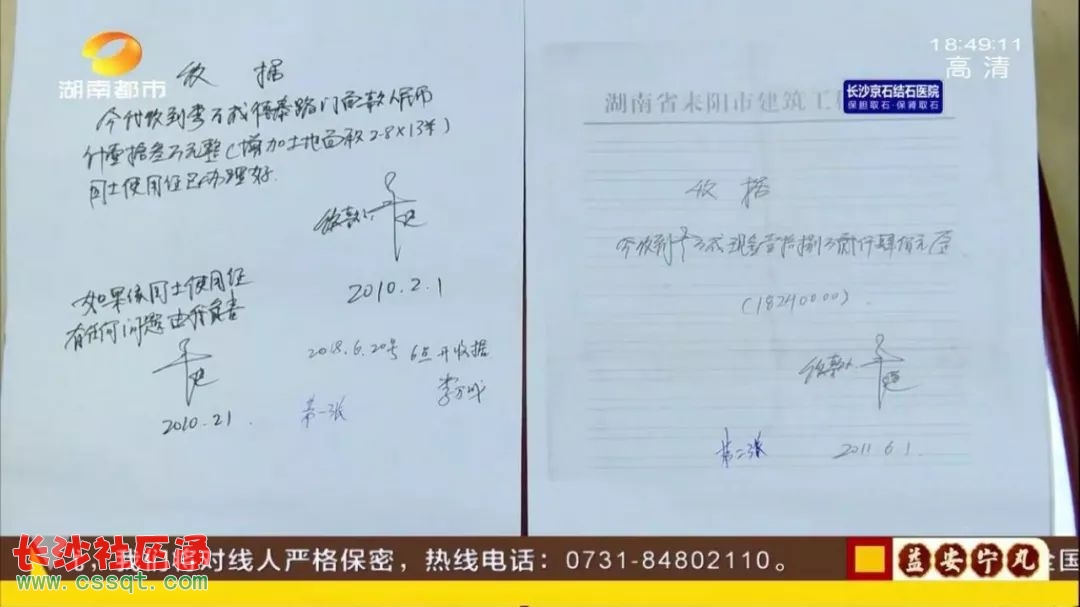 湖南都市
18:49:11
高清
长沙京石结石医院
保胆取石·保肾取石
收 据
今付收到李万成 路门面款人民币
什壹拾叁万元整(增加土地面积2.8×13米)
国土使用证已办理好.
收款人
2010.2.1
如果该国土使用证
有任何问题由我负责
2010.2.1
2018.6.20号 6点开收据
李万成
第一张
湖南省耒阳市建筑工程
收 据
今收到李万成现金壹拾捌万贰仟肆佰元正
(18240000)
收款人
第二张 2011.6.1.
,我们将对线人严格保密,热线电话:0731-84802110。
益安宁丸
全国
长沙社区通
www.cssqt.com